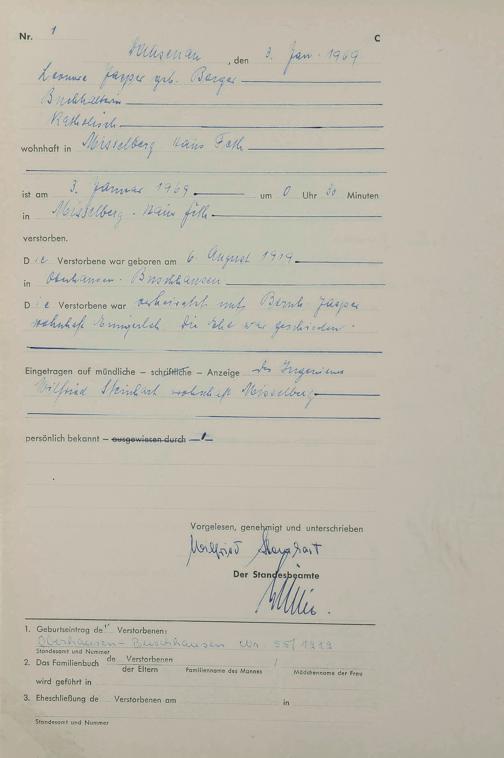 Nr. 1 C
Dachsenau, den 3. Jan. 1969
Leonore Jasper geb. Berger
Buchhalterin
Katholisch
wohnhaft in Misselberg Haus Foth
ist am 3. Januar 1969 um 0 Uhr 30 Minuten
in Misselberg - Haus Foth
verstorben.
Die Verstorbene war geboren am 6. August 1919
in Oberhausen - Buschhausen
Die Verstorbene war verheiratet mit Bernh. Jasper
wohnhaft Ennigerloh. Die Ehe war geschieden.
Eingetragen auf mündliche – schriftliche – Anzeige des Ingenieurs
Wilfried Steinhart wohnhaft Misselberg
persönlich bekannt – ausgewiesen durch
Vorgelesen, genehmigt und unterschrieben
Wilfried Steinhart
Der Standesbeamte
1. Geburtseintrag der Verstorbenen:
Oberhausen - Buschhausen Nr. 55/1919
Standesamt und Nummer
2. Das Familienbuch de Verstorbenen /
der Eltern Familienname des Mannes Mädchenname der Frau
wird geführt in
3. Eheschließung de Verstorbenen am in
Standesamt und Nummer